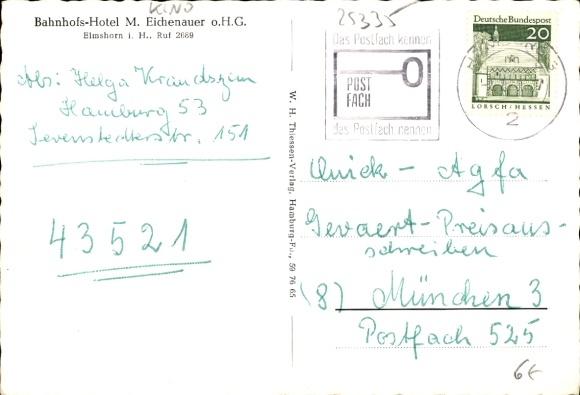 KINO
Bahnhofs-Hotel M. Eichenauer o.H.G.
Elmshorn i. H., Ruf 2669
Abs: Helga
Hamburg 53
151
43521
W. H. Thiessen-Verlag, Hamburg-Fu., 59 76 65
25335
Das Postfach kennen
POST
FACH
das Postfach nennen
Deutsche Bundespost
20
LORSCH/HESSEN
2
Quick - Agfa
Gevaert-Preisaus-
schreiben
(8) München 3
Postfach 525
6€